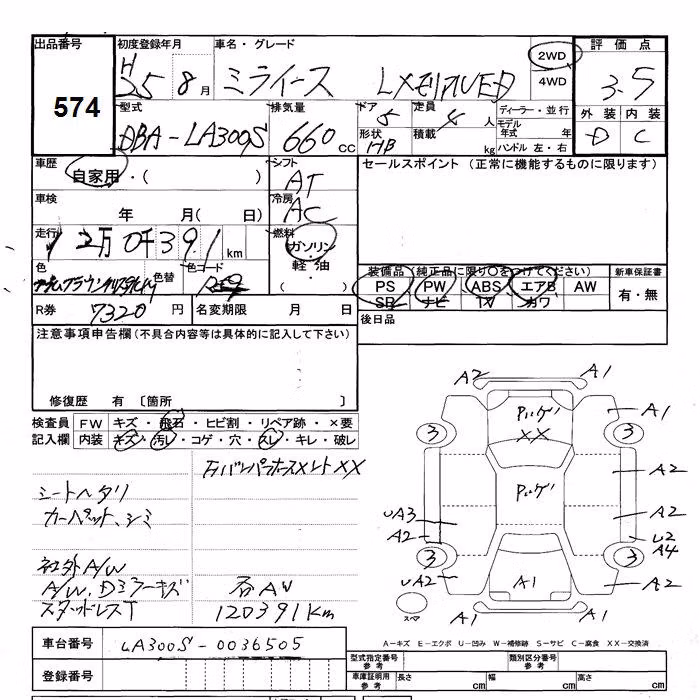 出品番号 初度登録年月 車名・グレード 評価点
574 H25 8月 ミライース 2WD 4WD 3.5
型式 排気量 ドア 定員 ディーラー・並行 外装 内装
DBA-LA300S 660cc 5 4人 モデル年式 年 D C
形状 HB 積載 kg ハンドル 左・右
車歴 シフト セールスポイント (正常に機能するものに限ります)
自家用・( ) AT
車検 冷房
年 月( 日) AC
走行 燃料
12万0千391km ガソリン
色 色替 色コード 軽油 装備品(純正品に限り○をつけてください) 新車保証書
・( ) PS PW ABS エアB AW 有・無
SR ナビ TV カワ
R券 7320円 名変期限 月 日 後日品
注意事項申告欄(不具合内容等は具体的に記入して下さい)
修復歴 有 〔箇所 〕
検査員 FW キズ・飛石・ヒビ割・リペア跡・×要
記入欄 内装 キズ・汚レ・コゲ・穴・スレ・キレ・破レ
シートヘタリ
カーペット、シミ
社外A/W
A/W、Dミラーキズ 否AW
スタッドレスT 120391Km
A2 A1
A1
XX
3 3
A2
UA3 A2
A2 U2
3 3 A4
UA2 A1 A2
A1 A1
スペア
A-キズ E-エクボ U-凹み W-補修跡 S-サビ C-腐食 XX-交換済
車台番号 LA300S-0036505
型式指定番号 参考 類別区分番号 参考
登録番号 車庫証明用 参考 長さ cm 幅 cm 高さ cm